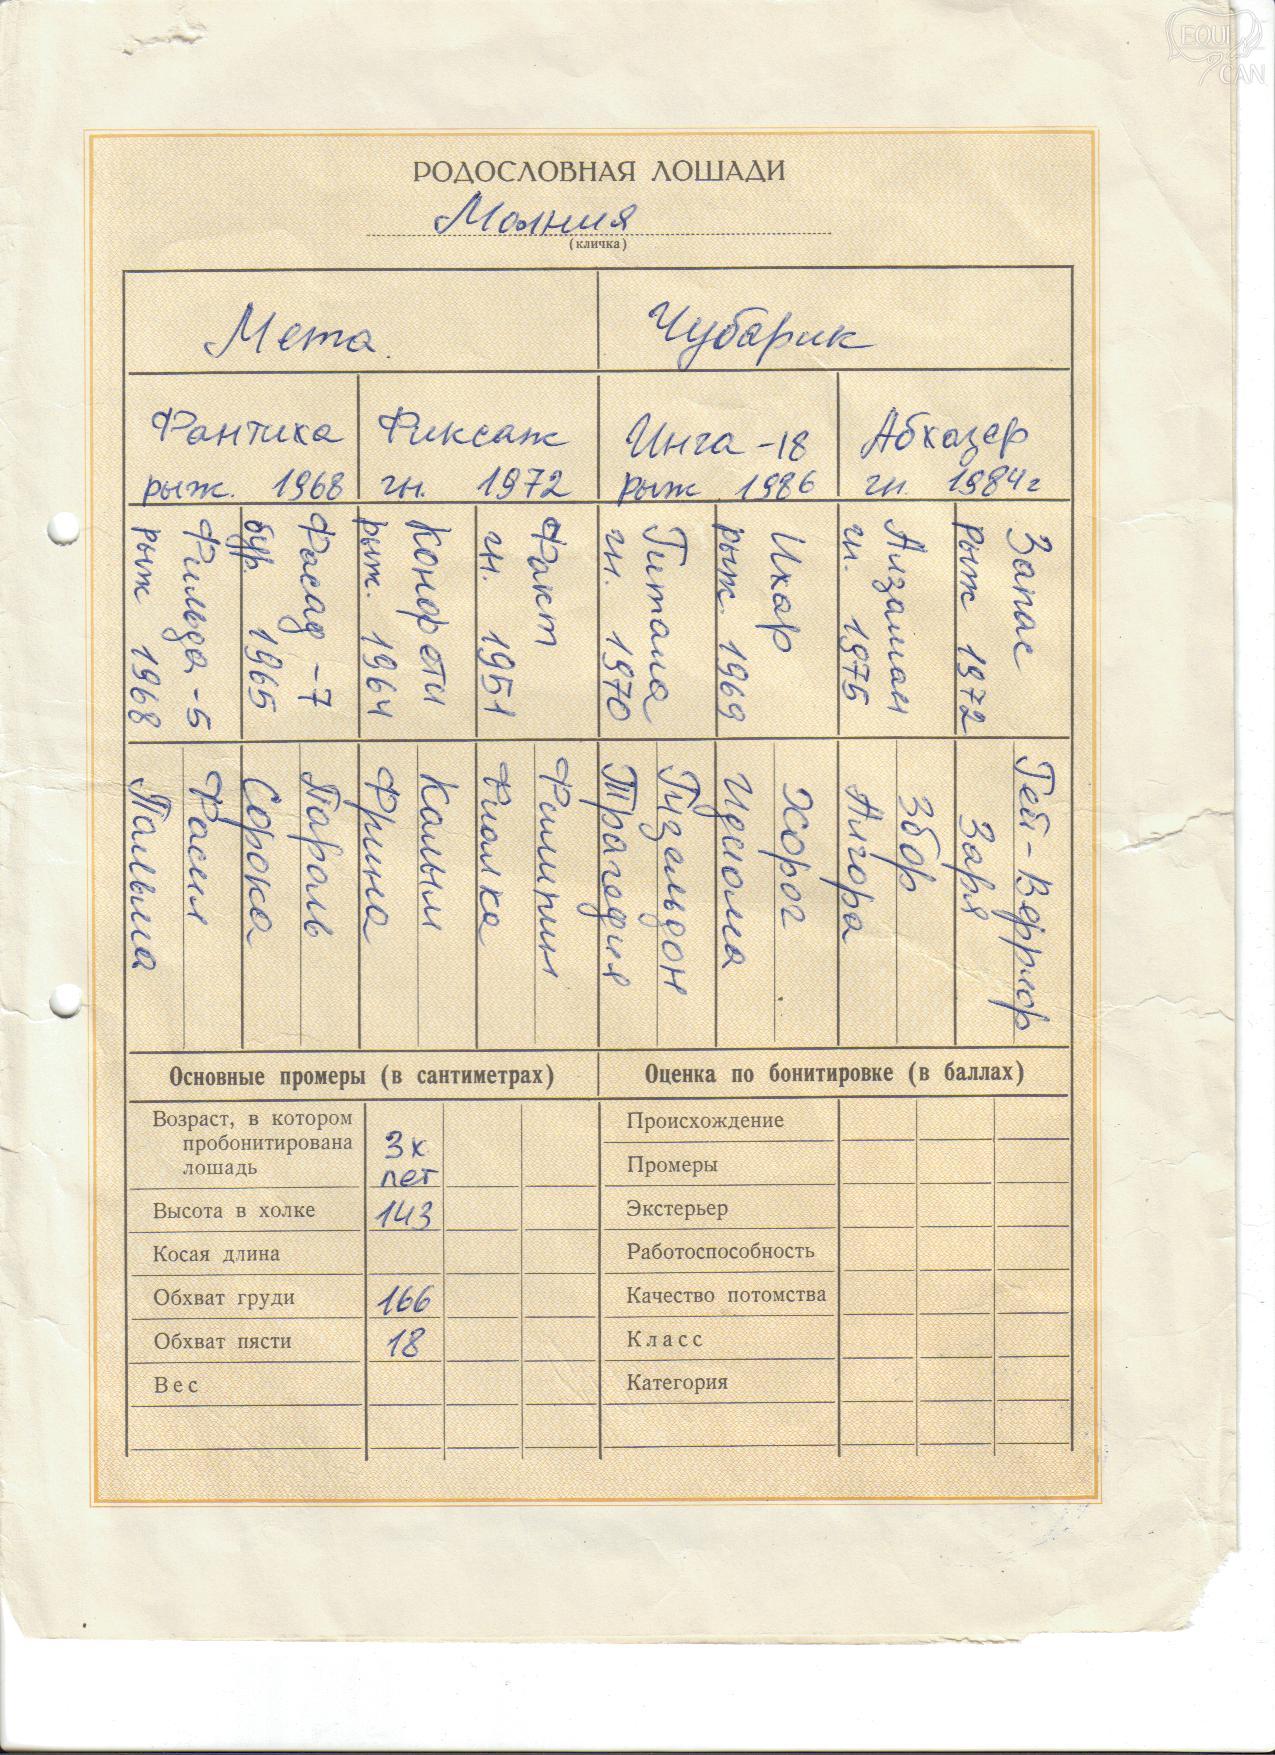 EQUI
CAN
РОДОСЛОВНАЯ ЛОШАДИ
Молния
(кличка)
Мета.
Чубарик
Фантика
рыж. 1968
Фиксаж
гн. 1972
Инга -18
рыж 1986
Абхазер
гн. 1984г
Фильда -5
рыж 1968
Фасад -7
бур. 1965
Конфети
рыж. 1964
Факт
гн. 1951
Гитана
гн. 1970
Ихор
рыж. 1969
Ализаман
гн. 1975
Запас
рыж 1972
Пальма
Фасил
Сорока
Пароль
Фрина
Калым
Фиалка
Филипин
Трагедия
Гизельдон
Идиома
Хорог
Ангора
Збор
Заря
Гей-Вориор
Основные промеры (в сантиметрах)
Оценка по бонитировке (в баллах)
Возраст, в котором
пробонитирована
лошадь
3х
лет
Высота в холке
143
Косая длина
Обхват груди
166
Обхват пясти
18
Вес
Происхождение
Промеры
Экстерьер
Работоспособность
Качество потомства
Класс
Категория